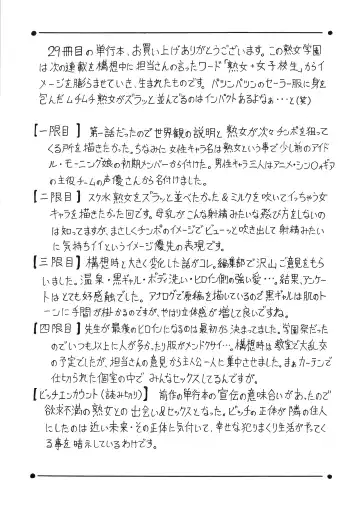 29冊目の単行本、お買い上げありがとうございます。この熟女学園
は次の連載を構想中に担当さんの言ったワード「熟女+女子校生」からイ
メージを膨らませていき、生まれたものです。パツンパツンのセーラー服に身を
包んだムチムチ熟女がズラッと並んでるのはインパクトあるよなぁ…と(笑)
【一限目】第一話だったので世界観の説明と熟女が次々チンポを狙って
くる所を描きたかった。ちなみに女性キャラ名は熟女という事で少し前のアイド
ル・モーニング娘の初期メンバーから付けた。男性キャラ三人はアニメ・シン○ォギア
の主役チームの声優さんから名付けました。
【二限目】スク水熟女をズラっと並べたかった&ミルクを吹いてイっちゃう女
キャラを描きたかった回です。母乳がこんな射精みたいな飛び方をしないの
は知ってますが、まさしくチンポのイメージでビューっと吹き出して射精みたい
に気持ちイイというイメージ優先の表現です。
【三限目】構想時と大きく変化した話がコレ。編集部で沢山ご意見をもら
いました。温泉・黒ギャル・ボディ洗い・ヒロイン側の強い愛…。結果、アンケー
トはとても好感触でした。アナログで原稿を描いているので黒ギャルは肌のトー
ンに手間が掛かるのですが、やはり立体感が増して良いですね。
【四限目】先生が最後のヒロインになるのは最初から決まってました。学園祭だった
のでいつも以上に人が多かったり服がメンドクサイ…。構想時は教室が大乱交
の予定でしたが、担当さんの意見から主人公一人に集中させました。まぁカーテンで
仕切られた個室の中で みんなセックスしてるんですが。
【ビッチエンカウント(読み切り)】 前作の単行本の宣伝の意味合いがあったので
欲求不満の熟女との出会い&セックスとなった。ビッチの正体が隣の住人
にしたのは近い未来・その正体に気付いて、幸せな犯りまくり生活が待ってく
る事を暗示しているわけです。